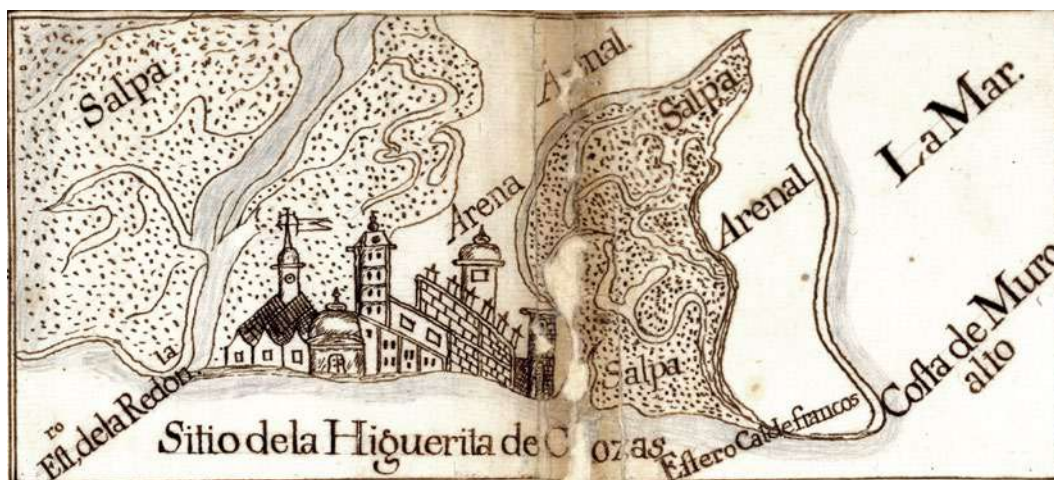 Salpa
Arenal
Salpa
La Mar.
Arena
Arenal
Salpa
Costa de Muro
alto
Est.ro de la Redon
la
Sitio dela Higuerita de
Estero Caidefrancos